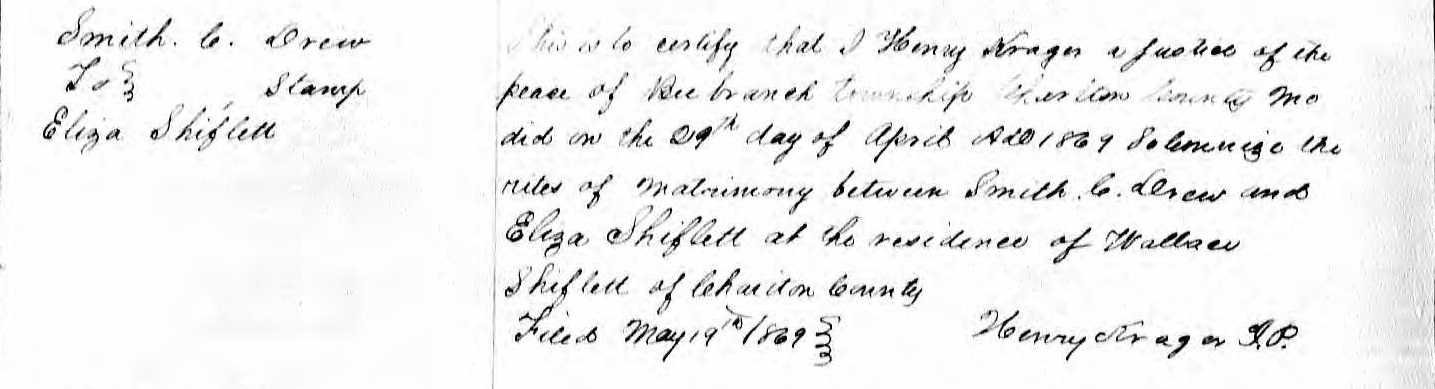 Smith. C. Drew
To } Stamp
Eliza Shiflett
This is to certify that I Henry Krager a Justice of the
peace of Bee branch township Chariton County Mo
did on the 29th day of April AD 1869 Solemnize the
rites of Matrimony between Smith. C. Drew and
Eliza Shiflett at the residence of Wallace
Shiflett of Chariton County
Filed May 19th 1869 } Henry Krager J.P.